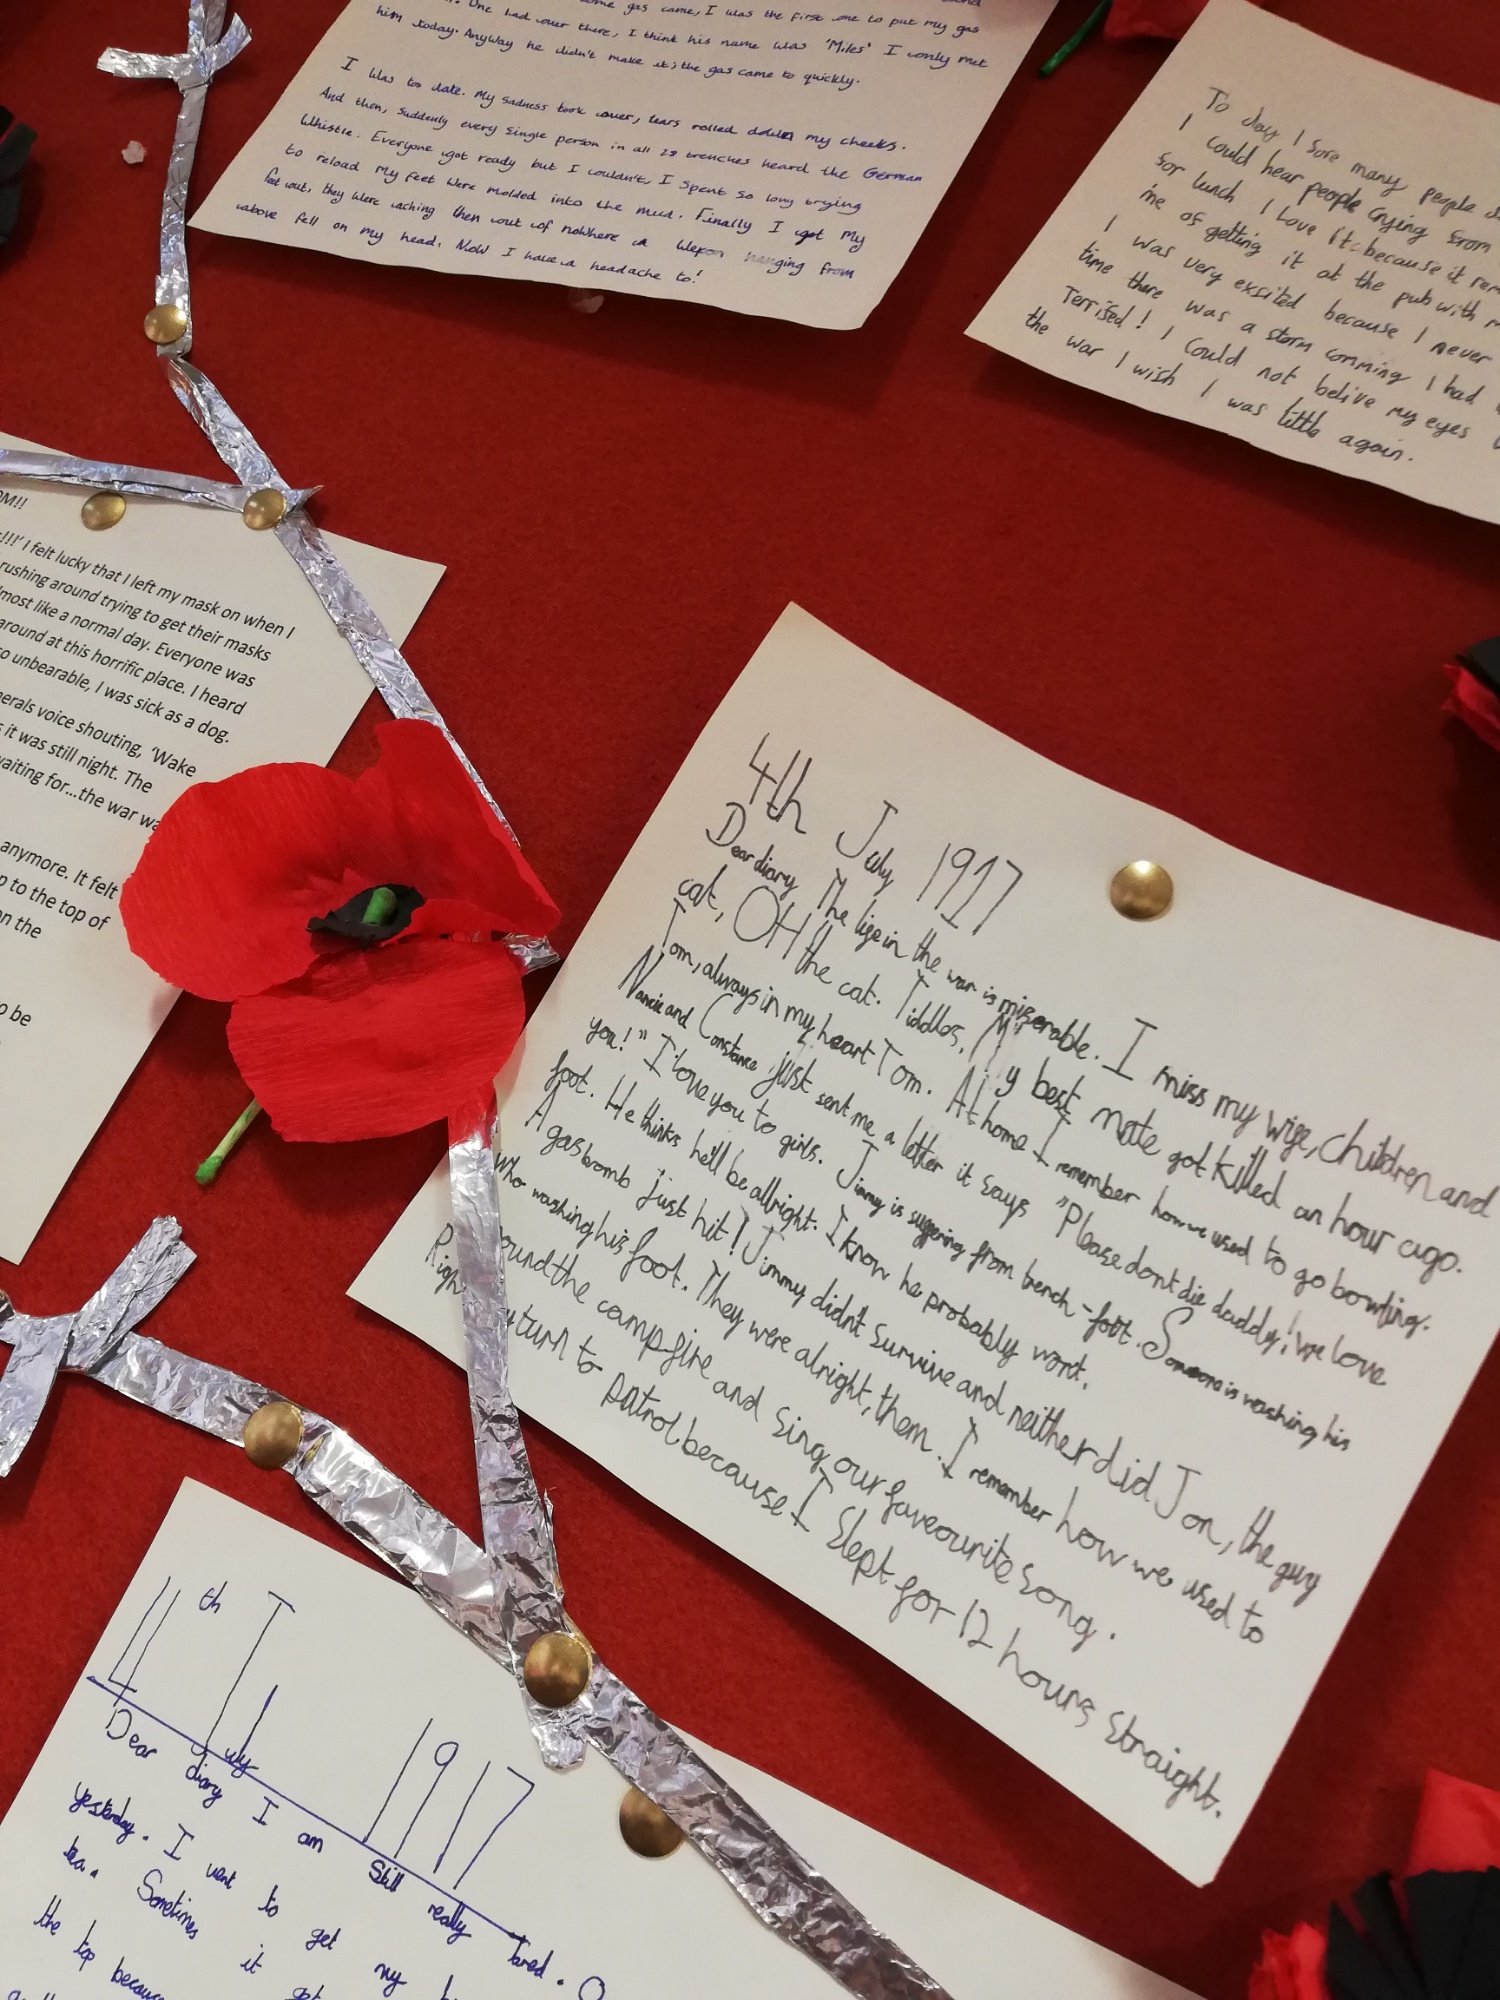 some gas came, I was the first one to put my gas
. One had over there, I think his name was 'Miles' I only met
him today. Anyway he didn't make it; the gas came to quickly.
I was too late. My sadness took over, tears rolled down my cheeks.
And then, suddenly every single person in all 28 trenches heard the German
Whistle. Everyone got ready but I couldn't, I spent so long trying
to reload my feet were molded into the mud. Finally I got my
feet out, they were aching then out of nowhere a wepon hanging from
above fell on my head. Now I have a headache to!
To day I sore many people
I could hear people crying from
for lunch I love it because it rem
me of getting it at the pub with m
I was very exsited because I never
time there was a storm comming I had
Terrified! I could not belive my eyes
the war I wish I was little again.
OM!!
!!!' I felt lucky that I left my mask on when I
rushing around trying to get their masks
most like a normal day. Everyone was
around at this horrific place. I heard
o unbearable, I was sick as a dog.
nerals voice shouting, 'Wake
s it was still night. The
waiting for...the war wa
anymore. It felt
p to the top of
on the
to be
4th July 1917
Dear diary The life in the war is miserable. I miss my wife, children and
cat, OH the cat. Tiddlos. My best mate got killed an hour ago.
Tom, always in my heart Tom. At home I remember how we used to go bowling.
Nancie and Constance just sent me a letter it says "Please dont die daddy! we love
you!" I love you to girls. Jimmy is suffering from trench-foot. Someone is washing his
foot. He thinks he'll be allright. I know he probably wont.
A gas bomb just hit! Jimmy didn't survive and neither did Jon, the guy
who washing his foot. They were alright, them. I remember how we used to
ound the campfire and sing our faveourite song.
Righ y turn to patrol because I slept for 12 hours straight.
4th July 1917
Dear diary I am still really tired. O
yesterday. I went to get my
tea. Sometimes it get
the top becaus